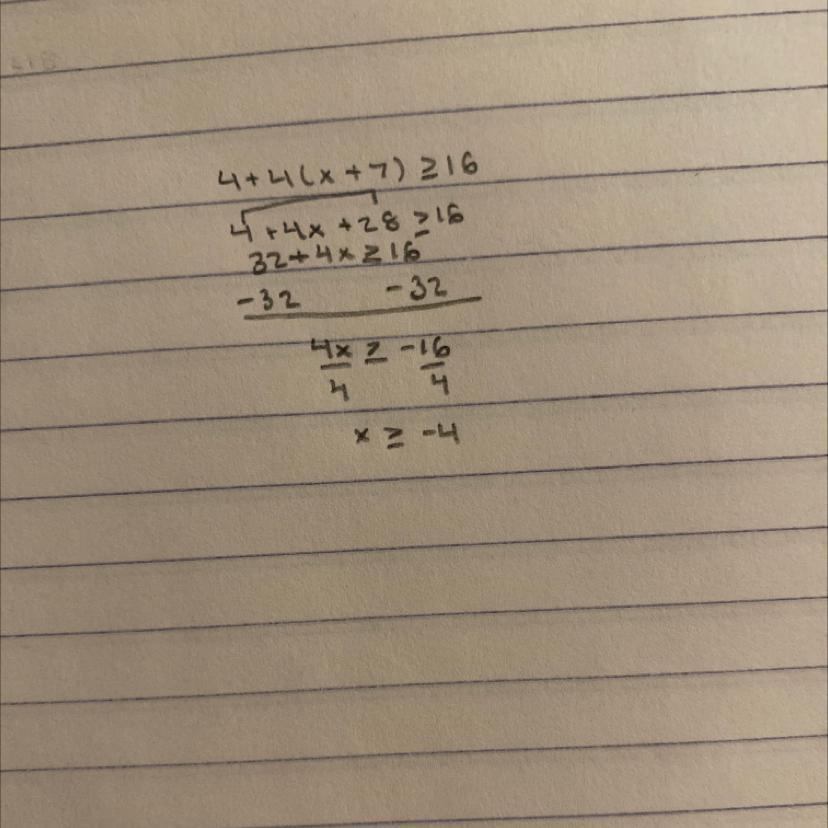 4+4(x+7) ≥16
4+4x+28 ≥16
32+4x≥16
-32 -32
4x ≥ -16
4 4
x ≥ -4